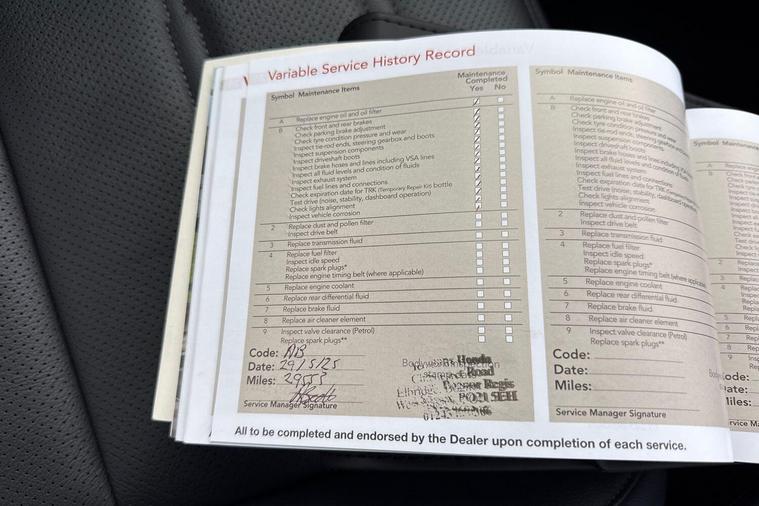 Variable Service History Record
Symbol Maintenance Items
Maintenance
Completed
Yes No
A Replace engine oil and oil filter
B Check front and rear brakes
Check parking brake adjustment
Check tyre condition pressure and wear
Inspect tie-rod ends, steering gearbox and boots
Inspect suspension components
Inspect driveshaft boots
Inspect brake hoses and lines including VSA lines
Inspect all fluid levels and condition of fluids
Inspect exhaust system
Inspect fuel lines and connections
Check expiration date for TRK (Temporary Repair Kit) bottle
Test drive (noise, stability, dashboard operation)
Check lights alignment
Inspect vehicle corrosion
2 Replace dust and pollen filter
Inspect drive belt
3 Replace transmission fluid
4 Replace fuel filter
Inspect idle speed
Replace spark plugs*
Replace engine timing belt (where applicable)
5 Replace engine coolant
6 Replace rear differential fluid
7 Replace brake fluid
8 Replace air cleaner element
9 Inspect valve clearance (Petrol)
Replace spark plugs**
Code: AB
Date: 29/5/25
Miles: 29553
Service Manager Signature
Honda
Road
Bognor Regis
PO21 5EH
All to be completed and endorsed by the Dealer upon completion of each service.
Symbol Maintenance Items
A Replace engine oil and oil filter
B Check front and rear brakes
Check parking brake adjustment
Check tyre condition pressure and
Inspect tie-rod ends, steering gearbox
Inspect suspension components
Inspect driveshaft boots
Inspect brake hoses and lines including
Inspect all fluid levels and condition of
Inspect exhaust system
Inspect fuel lines and connections
Check expiration date for TRK
Test drive (noise, stability, dashboard
Check lights alignment
Inspect vehicle corrosion
2 Replace dust and pollen filter
Inspect drive belt
3 Replace transmission fluid
4 Replace fuel filter
Inspect idle speed
Replace spark plugs*
Replace engine timing belt (where applicable)
5 Replace engine coolant
6 Replace rear differential fluid
7 Replace brake fluid
8 Replace air cleaner element
9 Inspect valve clearance (Petrol)
Replace spark plugs**
Code:
Date:
Miles:
Service Manager Signature
Symbol